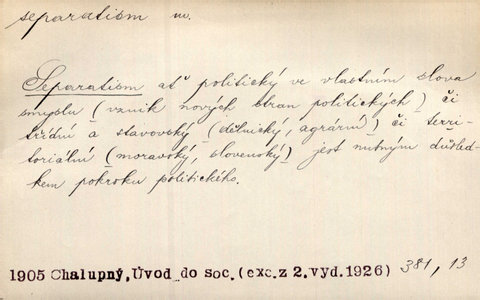 separatism m.
Separatism ať politický ve vlastním slova
smyslu (vznik nových stran politických) či
třídní a stavovský (dělnický, agrární) či terri-
toriální (moravský, slovenský) jest nutným důsled-
kem pokroku politického.
1905 Chalupný, Úvod do soc. (exc. z 2. vyd. 1926) 381, 13